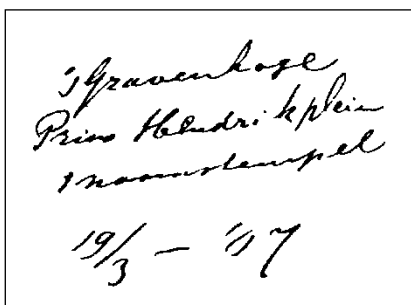 'sGravenhage
Prins Hendrikplein
1 naamstempel
19/3 — '07